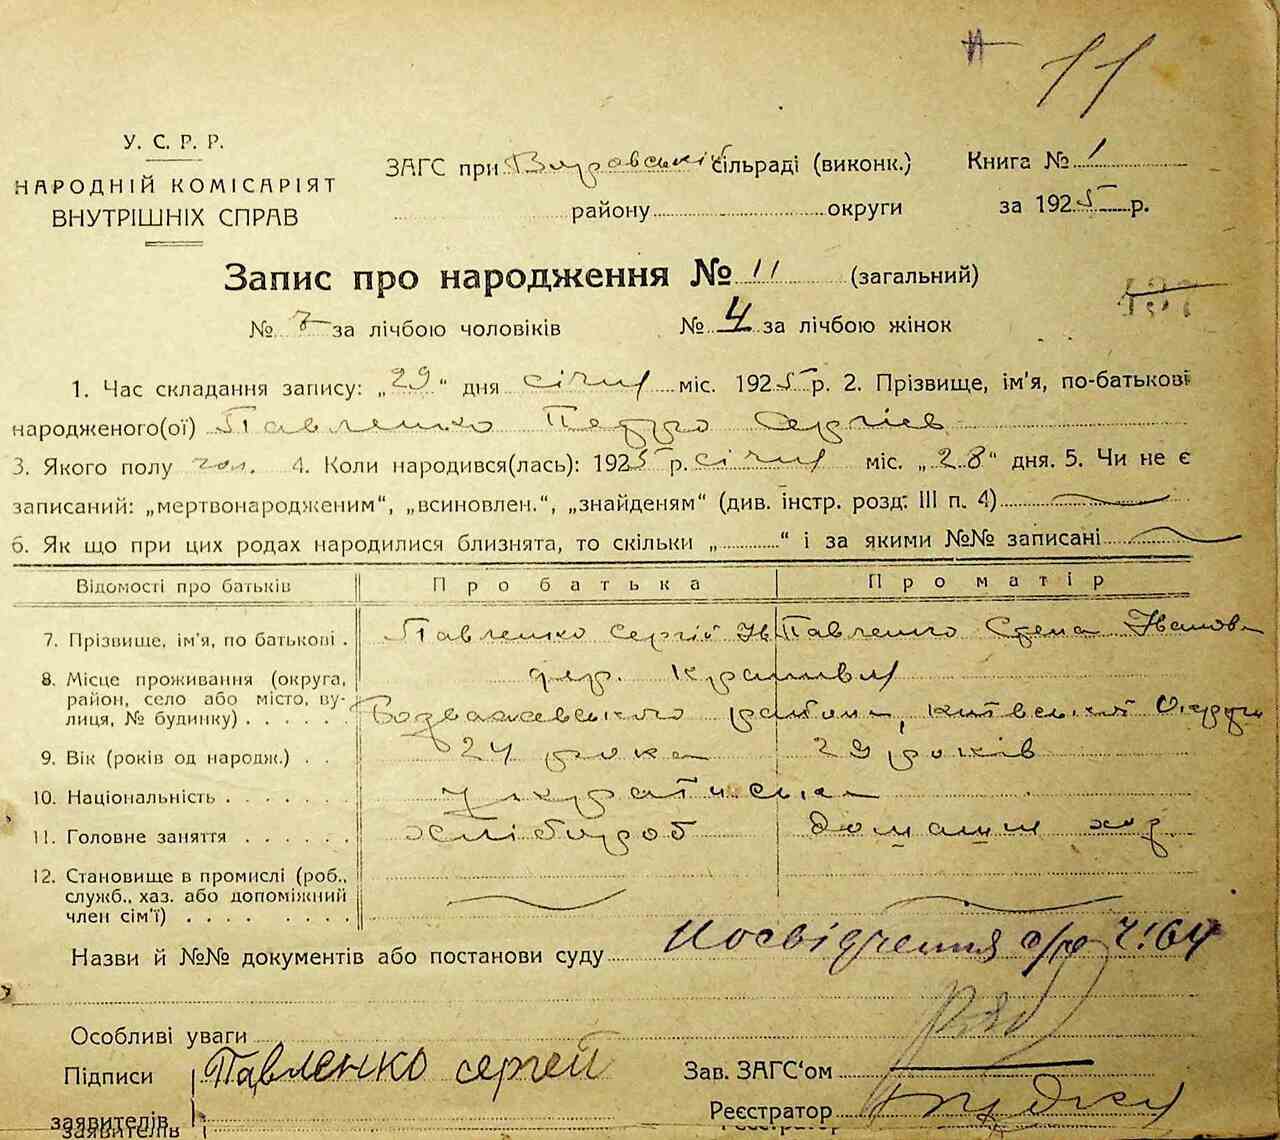 11
У. С. Р. Р.
НАРОДНІЙ КОМІСАРІЯТ
ВНУТРІШНІХ СПРАВ
ЗАГС при сільраді (виконк.)
району округи
Книга № 1
за 1925 р.
Запис про народження № 11 (загальний)
№ 7 за лічбою чоловіків № 4 за лічбою жінок
1. Час складання запису: „29“ дня січня міс. 1925 р. 2. Прізвище, ім'я, по-батькові
народженого(ої) Павленко Петро Сергієв
3. Якого полу чол. 4. Коли народився(лась): 1925 р. січня міс. „28“ дня. 5. Чи не є
записаний: „мертвонародженим“, „всиновлен.“, „знайденям“ (див. інстр. розд. III п. 4)
6. Як що при цих родах народилися близнята, то скільки „ “ і за якими №№ записані
Відомості про батьків Про батька Про матір
7. Прізвище, ім'я, по батькові . Павленко Сергій Ів Павленко Іванов
8. Місце проживання (округа, район, село або місто, вулиця, № будинку) . . . . . .
району, Київської Округи
9. Вік (років од народж.) . . 24 рока 29 років
10. Національність . . . . . . .
11. Головне заняття . . . . . . Хлібороб домашн. хоз.
12. Становище в промислі (роб.,
служб., хаз. або допоміжний
член сім'ї) . . . . . . . .
Назви й №№ документів або постанови суду Посвідчення с/р ч. 64
Особливі уваги
Підписи Павленко сергей Зав. ЗАГС'ом
заявителів Реєстратор